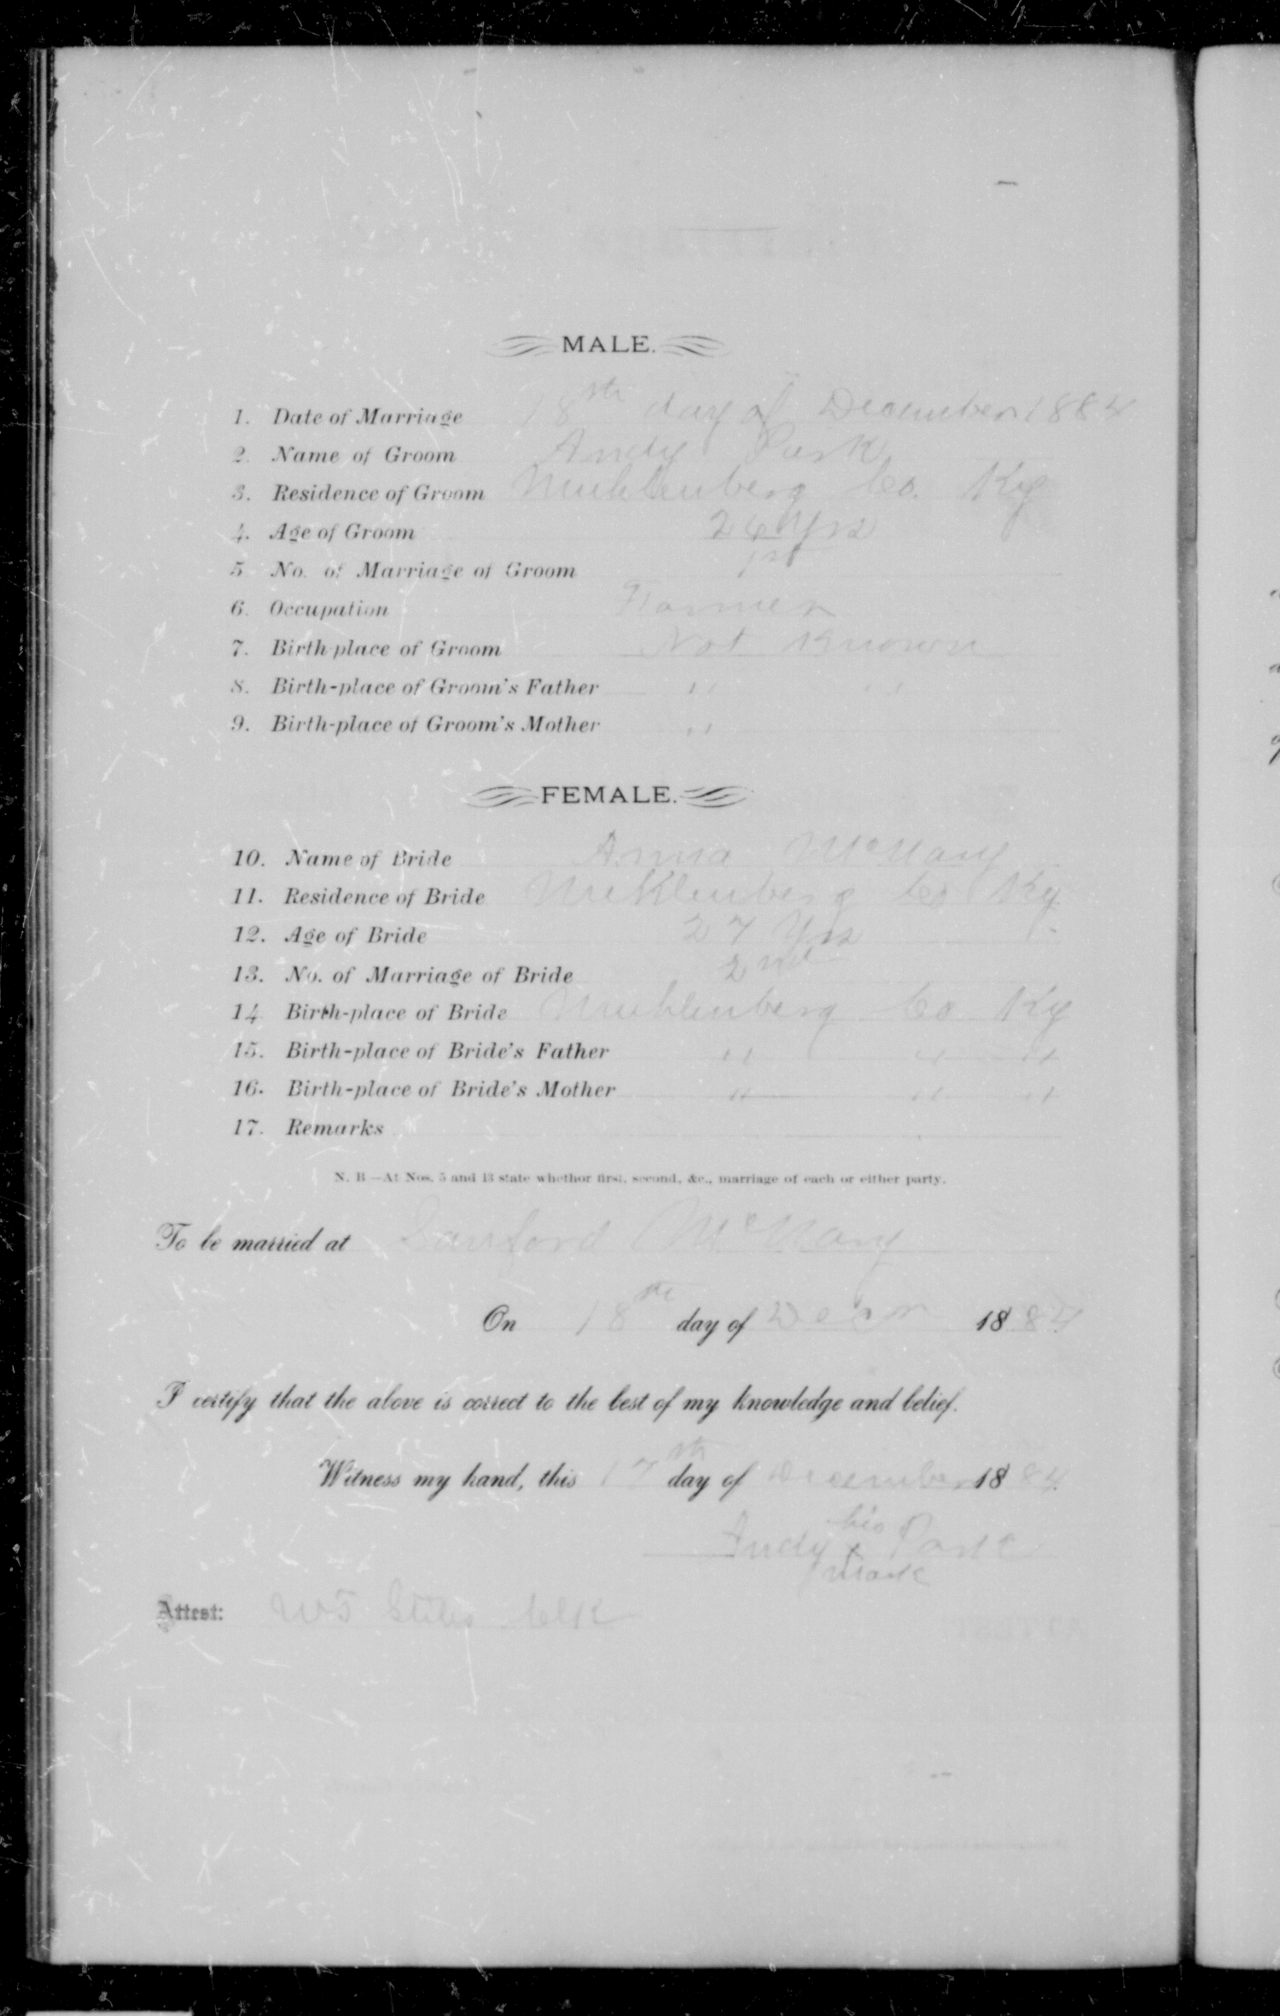 MALE.
1. Date of Marriage 18th day of December 1884
2. Name of Groom Andy Park
3. Residence of Groom Muhlenberg Co. Ky
4. Age of Groom Yrs
5 No. of Marriage of Groom 1st
6. Occupation Farmer
7. Birth-place of Groom Not Known
8. Birth-place of Groom's Father " "
9. Birth-place of Groom's Mother "
FEMALE.
10. Name of Bride Anna McNary
11. Residence of Bride Muhlenberg Co Ky
12. Age of Bride 27 Yrs
13. No. of Marriage of Bride 2nd
14 Birth-place of Bride Muhlenberg Co Ky
15. Birth-place of Bride's Father " " "
16. Birth-place of Bride's Mother " " "
17. Remarks
N. B—At Nos. 5 and 13 state whethor first, second, &c., marriage of each or either party.
To be married at Sanford McNary
On 18th day of Decr 1884
I certify that the above is correct to the best of my knowledge and belief.
Witness my hand, this 17th day of December 1884
his
Andy x Park
mark
Attest: Stiles Clk